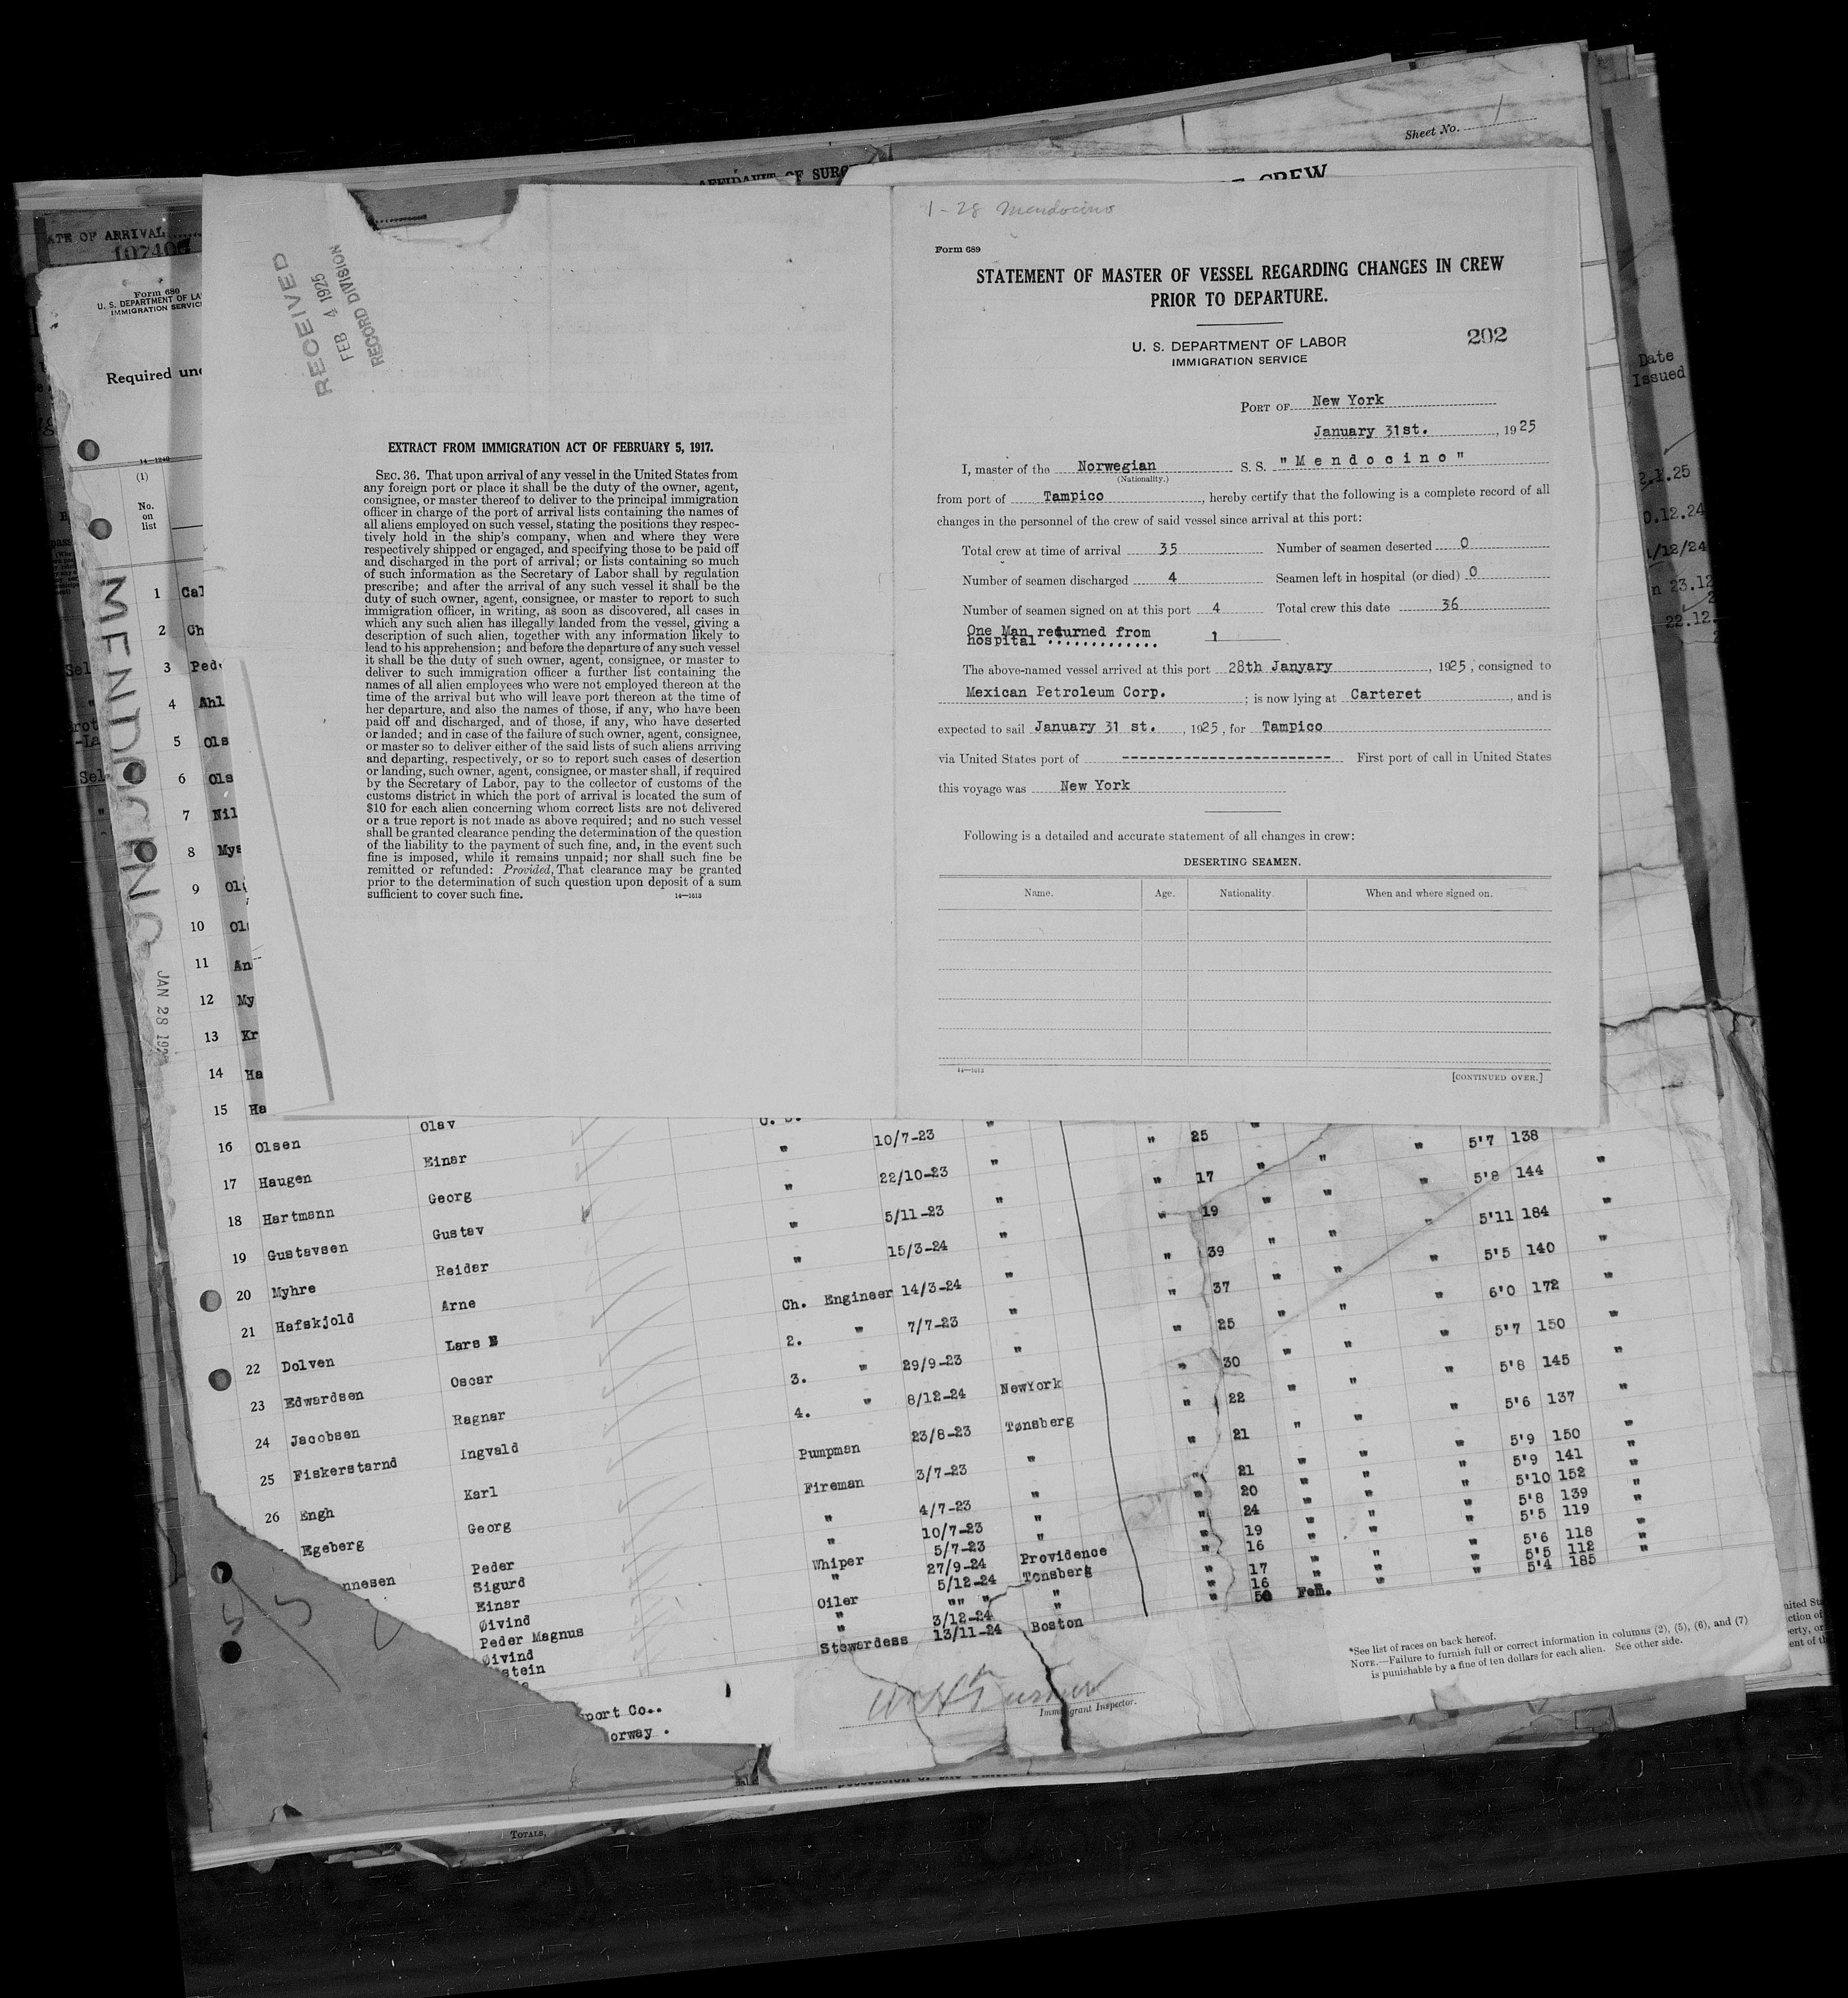 Sheet No. 1
AFFIDAVIT OF SURG
CREW
DATE OF ARRIVAL
107406
Form 689
U. S. DEPARTMENT OF LA
IMMIGRATION SERVIC
Required und
14—1240
(1)
No.
on
list
MENDOCINO
JAN 28 192
RECEIVED
FEB 4 1925
RECORD DIVISION
EXTRACT FROM IMMIGRATION ACT OF FEBRUARY 5, 1917.
SEC. 36. That upon arrival of any vessel in the United States from
any foreign port or place it shall be the duty of the owner, agent,
consignee, or master thereof to deliver to the principal immigration
officer in charge of the port of arrival lists containing the names of
all aliens employed on such vessel, stating the positions they respec-
tively hold in the ship's company, when and where they were
respectively shipped or engaged, and specifying those to be paid off
and discharged in the port of arrival; or lists containing so much
of such information as the Secretary of Labor shall by regulation
prescribe; and after the arrival of any such vessel it shall be the
duty of such owner, agent, consignee, or master to report to such
immigration officer, in writing, as soon as discovered, all cases in
which any such alien has illegally landed from the vessel, giving a
description of such alien, together with any information likely to
lead to his apprehension; and before the departure of any such vessel
it shall be the duty of such owner, agent, consignee, or master to
deliver to such immigration officer a further list containing the
names of all alien employees who were not employed thereon at the
time of the arrival but who will leave port thereon at the time of
her departure, and also the names of those, if any, who have been
paid off and discharged, and of those, if any, who have deserted
or landed; and in case of the failure of such owner, agent, consignee,
or master so to deliver either of the said lists of such aliens arriving
and departing, respectively, or so to report such cases of desertion
or landing, such owner, agent, consignee, or master shall, if required
by the Secretary of Labor, pay to the collector of customs of the
customs district in which the port of arrival is located the sum of
$10 for each alien concerning whom correct lists are not delivered
or a true report is not made as above required; and no such vessel
shall be granted clearance pending the determination of the question
of the liability to the payment of such fine, and, in the event such
fine is imposed, while it remains unpaid; nor shall such fine be
remitted or refunded: Provided, That clearance may be granted
prior to the determination of such question upon deposit of a sum
sufficient to cover such fine.
14—1613
1-28 Mendocino
Form 689
STATEMENT OF MASTER OF VESSEL REGARDING CHANGES IN CREW
PRIOR TO DEPARTURE.
U. S. DEPARTMENT OF LABOR
IMMIGRATION SERVICE
202
PORT OF New York
January 31st. , 1925
I, master of the Norwegian S. S. "Mendocino"
(Nationality.)
from port of Tampico , hereby certify that the following is a complete record of all
changes in the personnel of the crew of said vessel since arrival at this port:
Total crew at time of arrival 35 Number of seamen deserted 0
Number of seamen discharged 4 Seamen left in hospital (or died) 0
Number of seamen signed on at this port 4 Total crew this date 36
One Man returned from
hospital ............. 1
The above-named vessel arrived at this port 28th Janyary , 1925 , consigned to
Mexican Petroleum Corp. ; is now lying at Carteret , and is
expected to sail January 31 st. , 1925 , for Tampico
via United States port of ------------------------ First port of call in United States
this voyage was New York
Following is a detailed and accurate statement of all changes in crew:
DESERTING SEAMEN.
Name. Age. Nationality. When and where signed on.
14—1613
[CONTINUED OVER.]
Date
Issued
2.1.25
0.12.24
1/12/24
n 23.12
22.12.
1 Cal
2 Ch
3 Ped
4 Ahl
5 Ols
6 Ols
7 Nil
8 Mys
9 Ol
10 Ol
11 An
12 My
13 Kr
14 Ha
15 Ha
16 Olsen Olav 10/7-23 " 25 " 5'7 138
17 Haugen Einar " 22/10-23 " 17 " " 5'8 144 "
18 Hartmann Georg " 5/11-23 " 19 " " 5'11 184 "
19 Gustavsen Gustav " 15/3-24 " 39 " " 5'5 140 "
20 Myhre Reidar Ch. Engineer 14/3-24 " 37 " " 6'0 172 "
21 Hafskjold Arne 2. " 7/7-23 " 25 " " 5'7 150 "
22 Dolven Lars E 3. " 29/9-23 " 30 " " 5'8 145 "
23 Edwardsen Oscar 4. " 8/12-24 NewYork " 22 " " 5'6 137 "
24 Jacobsen Ragnar Pumpman 23/8-23 Tønsberg " 21 " " 5'9 150 "
25 Fiskerstarnd Ingvald Fireman 3/7-23 " 21 " " 5'9 141 "
26 Engh Karl " 4/7-23 " 20 " " 5'10 152 "
Egeberg Georg " 10/7-23 " 24 " " 5'8 139 "
nnesen Peder 5/7-23 " 19 " " 5'5 119 "
Sigurd Whiper 27/9-24 Providence " 16 " " 5'6 118 "
Einar " 5/12-24 Tonsberg " 17 " " 5'5 112 "
Øivind Oiler "" " " 16 " " 5'4 185 "
Peder Magnus " 3/12-24 "
Øivind Stewardess 13/11-24 Boston 50 Fem.
stein
sport Co..
orway .
Immigrant Inspector.
*See list of races on back hereof.
NOTE.—Failure to furnish full or correct information in columns (2), (5), (6), and (7)
is punishable by a fine of ten dollars for each alien. See other side.
TOTALS,